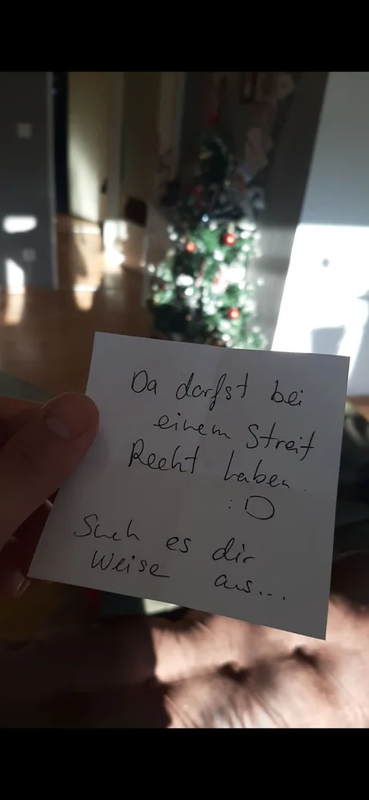 Du darfst bei
einem Streit
Recht haben.
:D
Such es dir
Weise aus...